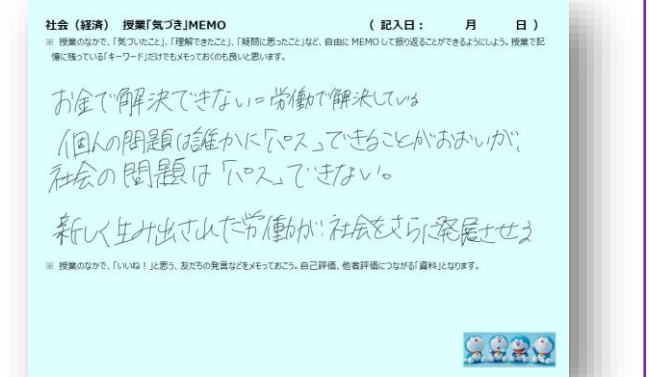 社会（経済） 授業「気づき」MEMO （ 記入日： 月 日 ）
※ 授業のなかで、「気づいたこと」、「理解できたこと」、「疑問に思ったこと」など、自由に MEMO して振り返ることができるようにしよう。授業で記
憶に残っている「キーワード」だけでもメモっておくのも良いと思います。
お金で解決できない＝労働で解決している
個人の問題は誰かに「パス」できることがおおいが、
社会の問題は「パス」できない。
新しく生み出された労働が社会をさらに発展させる
※ 授業のなかで、「いいね！」と思う、友だちの発言などをメモっておこう。自己評価、他者評価につながる「資料」となります。